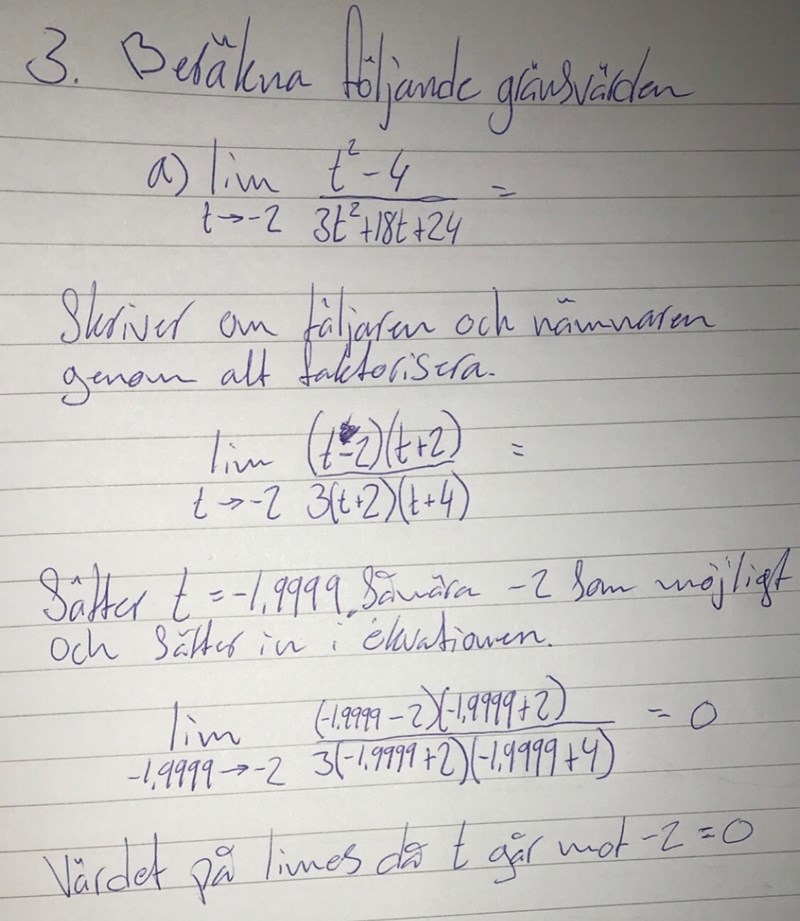 3. Beräkna följande gränsvärden
a) lim t→-2 (t²-4)/(3t²+18t+24) =
Skriver om täljaren och nämnaren
genom att faktorisera.
lim t→-2 (t-2)(t+2)/3(t+2)(t+4) =
Sätter t = -1,9999. Så nära -2 som möjligt
och sätter in i ekvationen.
lim -1,9999→-2 (-1,9999-2)(-1,9999+2)/3(-1,9999+2)(-1,9999+4) = 0
Värdet på limes då t går mot -2 = 0